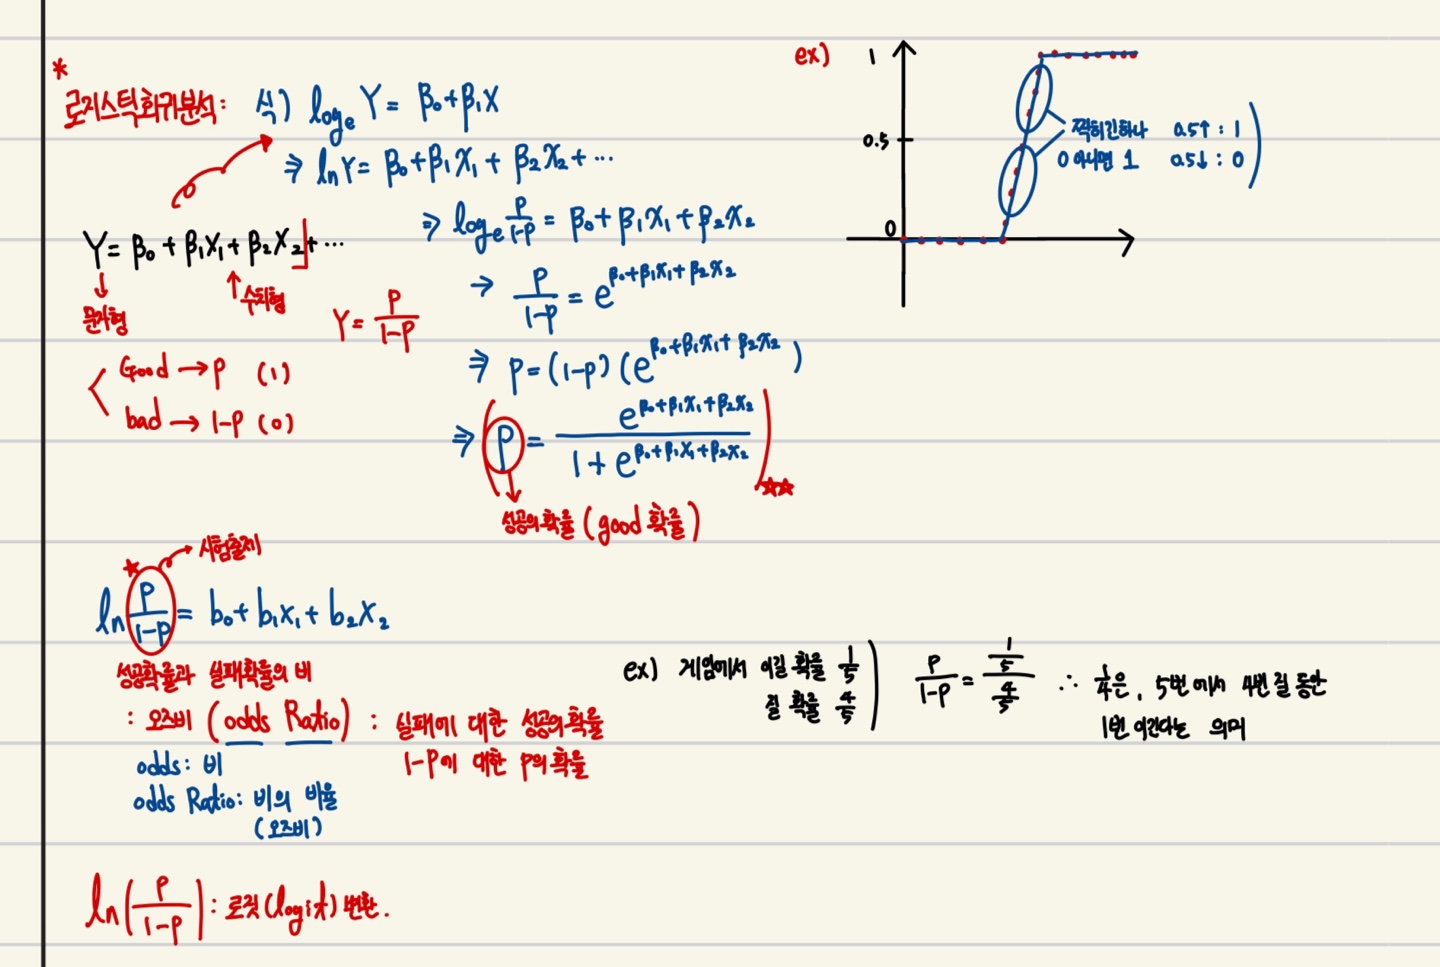 *
로지스틱회귀분석: 식) logₑ Y = β₀+β₁X
⇒ ln Y = β₀+β₁X₁ + β₂X₂ + ···
⇒ logₑ P/1-P = β₀+β₁X₁+β₂X₂
Y = β₀ + β₁X₁ + β₂X₂] + ···
문자형
수치형
Y = P/1-P
Good → P (1)
bad → 1-P (0)
→ P/1-P = e^β₀+β₁X₁+β₂X₂
⇒ P = (1-P) (e^β₀+β₁X₁+β₂X₂)
⇒ (P = e^β₀+β₁X₁+β₂X₂ / 1 + e^β₀+β₁X₁+β₂X₂) ☆☆
성공의 확률 (good 확률)
ex)
1
0.5
0
찍히긴하나 0.5↑ : 1
0 아니면 1 0.5↓ : 0
★ 시험출제
ln P/1-P = b₀+b₁X₁+b₂X₂
성공확률과 실패확률의 비
: 오즈비 (odds Ratio) : 실패에 대한 성공의 확률
1-P에 대한 P의 확률
odds : 비
odds Ratio : 비의 비율
(오즈비)
ex) 게임에서 이길 확률 1/5
질 확률 4/5
P/1-P = 1/5 / 4/5 ∴ 1/4은, 5번에서 4번 질 동안
1번 이긴다는 의미
ln(P/1-P) : 로짓(logit) 변환.